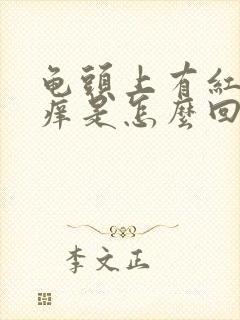 龟頭上有紅
痒是怎麼回
李文正